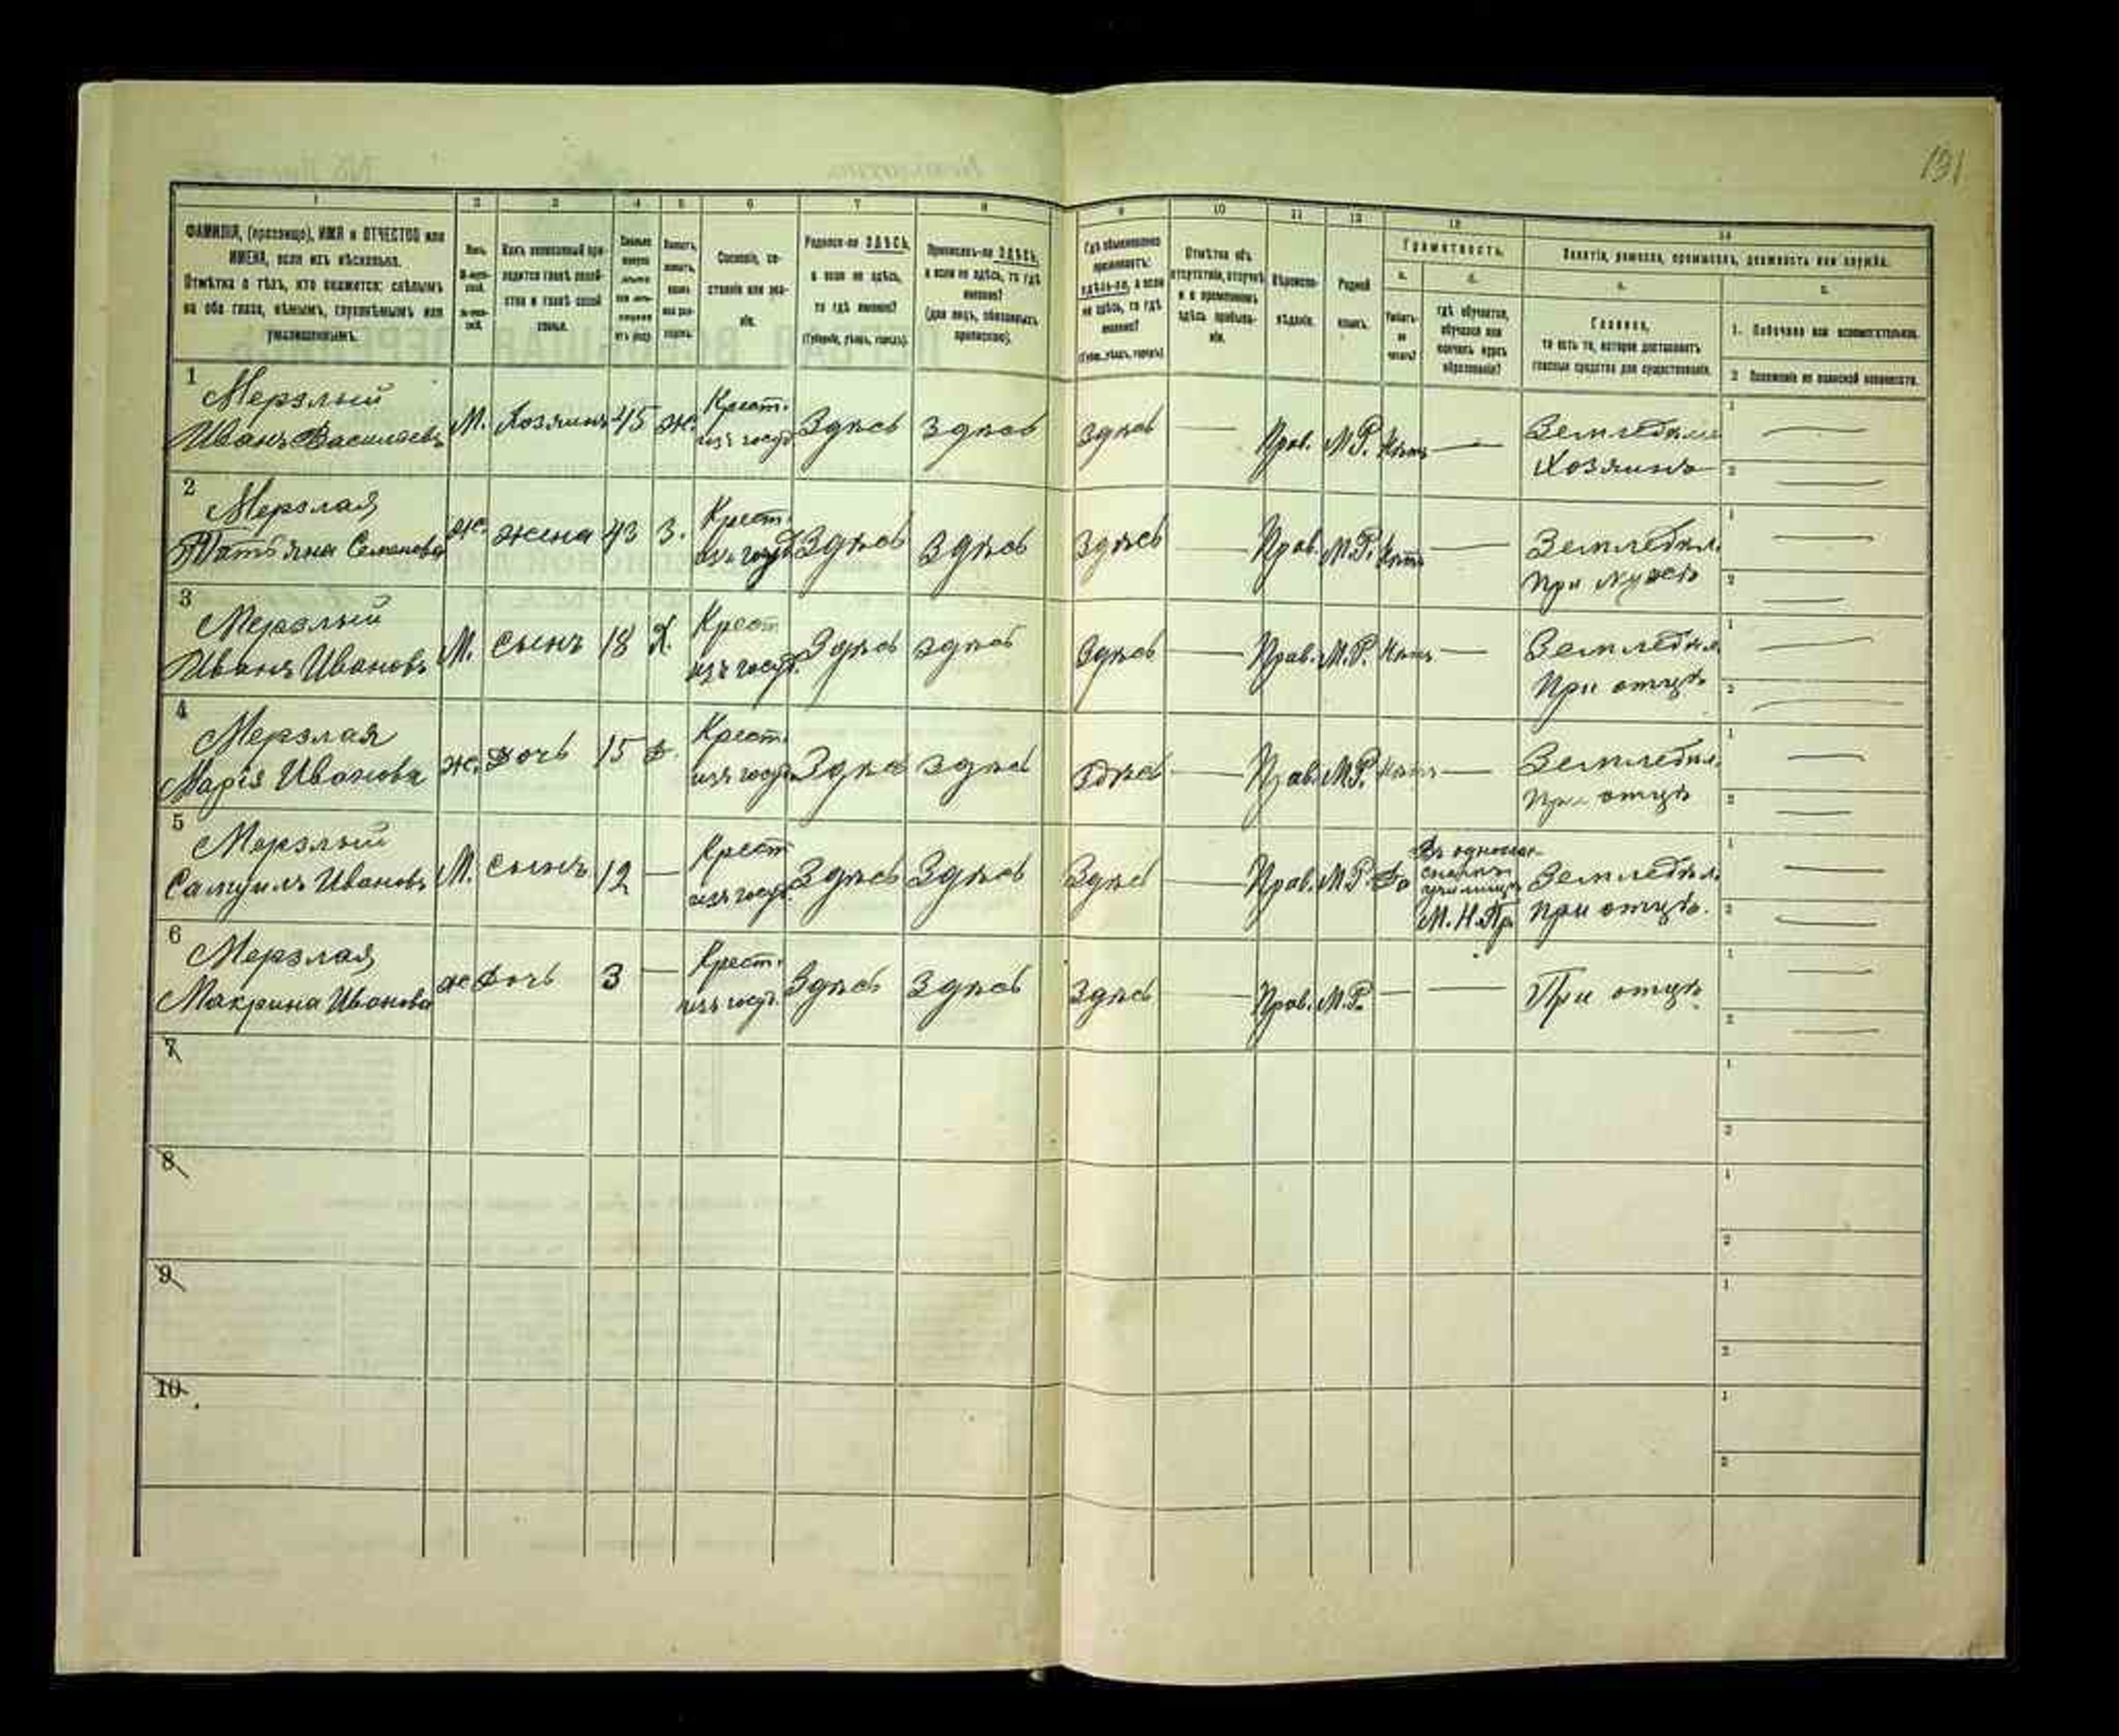 191
1 2 3 4 5 6 7 8 9 10 11 12 13 14
ФАМИЛІЯ, (прозвище), ИМЯ и ОТЧЕСТВО или
ИМЕНА, если ихъ нѣсколько.
Отмѣтка о тѣхъ, кто окажется: слѣпымъ
на оба глаза, нѣмымъ, глухонѣмымъ или
умалишеннымъ.
Какъ записанный при-
ходится главѣ хозяй-
ства и главѣ своей
семьи.
Сословіе, со-
стояніе или зва-
ніе.
Родился-ли ЗДѢСЬ,
а если не здѣсь,
то гдѣ именно?
(Губернія, уѣздъ, городъ).
Приписанъ-ли ЗДѢСЬ,
а если не здѣсь, то гдѣ
именно?
(для лицъ, обязанныхъ
припискою).
Гдѣ обыкновенно
проживаетъ:
здѣсь-ли, а если
не здѣсь, то гдѣ
именно?
(Губер., уѣздъ, городъ)
Отмѣтка объ
отсутствіи, отлучкѣ
и о временномъ
здѣсь пребыва-
ніи.
Вѣроиспо-
вѣданіе.
Родной
языкъ.
Грамотность.
а.
Умѣетъ-
ли
читать?
б.
гдѣ обучается,
обучался или
кончилъ курсъ
образованія?
Занятіе, ремесло, промыселъ, должность или служба.
а.
Главное,
то есть то, которое доставляетъ
главныя средства для существованія.
б.
1. Побочное или вспомогательное.
2 Положеніе по воинской повинности.
1
Мерзлый
Иванъ Васильевъ
М. Хозяинъ 45 ж.
Крест.
изъ госуд.
Здѣсь Здѣсь Здѣсь — Прав. М.Р. Нѣтъ —
Земледѣл.
Хозяинъ
1 —
2 —
2
Мерзлая
Татьяна Семенова
ж. жена 43 З.
Крест.
изъ госуд.
Здѣсь Здѣсь Здѣсь — Прав. М.Р. Нѣтъ —
Земледѣл.
При мужѣ
1 —
2 —
3
Мерзлый
Иванъ Ивановъ
М. сынъ 18 Х.
Крест.
изъ госуд.
Здѣсь здѣсь Здѣсь — Прав. М.Р. Нѣтъ —
Земледѣл.
При отцѣ
1 —
2 —
4
Мерзлая
Марія Иванова
ж. Дочь 15 Д.
Крест.
изъ госуд.
Здѣсь здѣсь здѣсь — Прав. М.Р. Нѣтъ —
Земледѣл.
При отцѣ
1 —
2 —
5
Мерзлый
Самуилъ Ивановъ
М. сынъ 12 —
Крест
изъ госуд.
Здѣсь Здѣсь Здѣсь — Прав. М.Р. Да
Въ однокл-
училищѣ
М.Н.Пр.
Земледѣл.
При отцѣ.
1 —
2 —
6
Мерзлая
Макрина Иванова
ж Дочь 3 —
Крест.
изъ госуд.
Здѣсь Здѣсь Здѣсь — Прав. М.Р. — —
При отцѣ
1 —
2 —
7
1
2
8
1
2
9
1
2
10
1
2